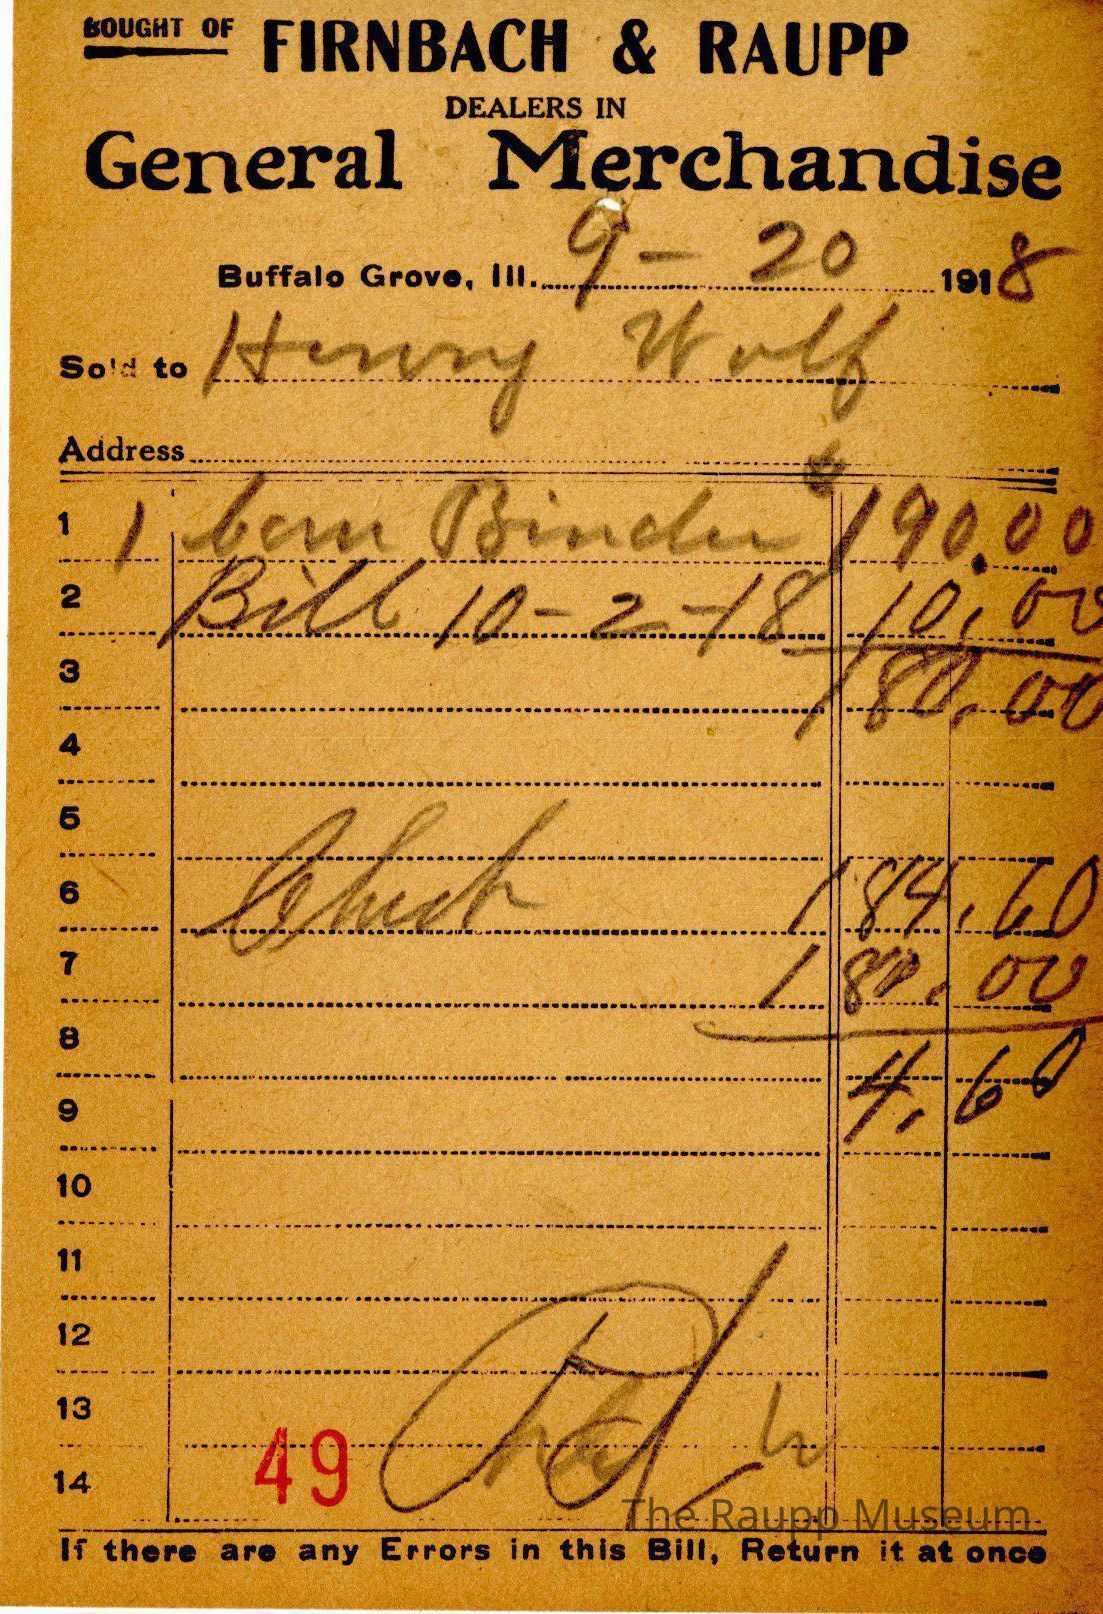 BOUGHT OF FIRNBACH & RAUPP
DEALERS IN
General Merchandise
Buffalo Grove, Ill. 9 - 20 1918
Sold to Henry Wolf
Address
1 1 corn Binder $ 190.00
2 Bill 10-2-18 10.00
3 180.00
4
5
6 Check 184.60
7 180.00
8 4.60
9
10
11
12
13
14 49
The Raupp Museum
If there are any Errors in this Bill, Return it at once